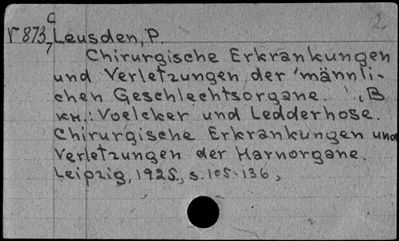 C 2
V 873/7 Leusden, P.
Chirurgische Erkrankungen
und Verletzungen der männli-
chen Geschlechtsorgane. , В
кн.: Voelcker und Ledderhose.
Chirurgische Erkrankungen und
Verletzungen der Harnorgane.
Leipzig, 1925., s. 105-136,